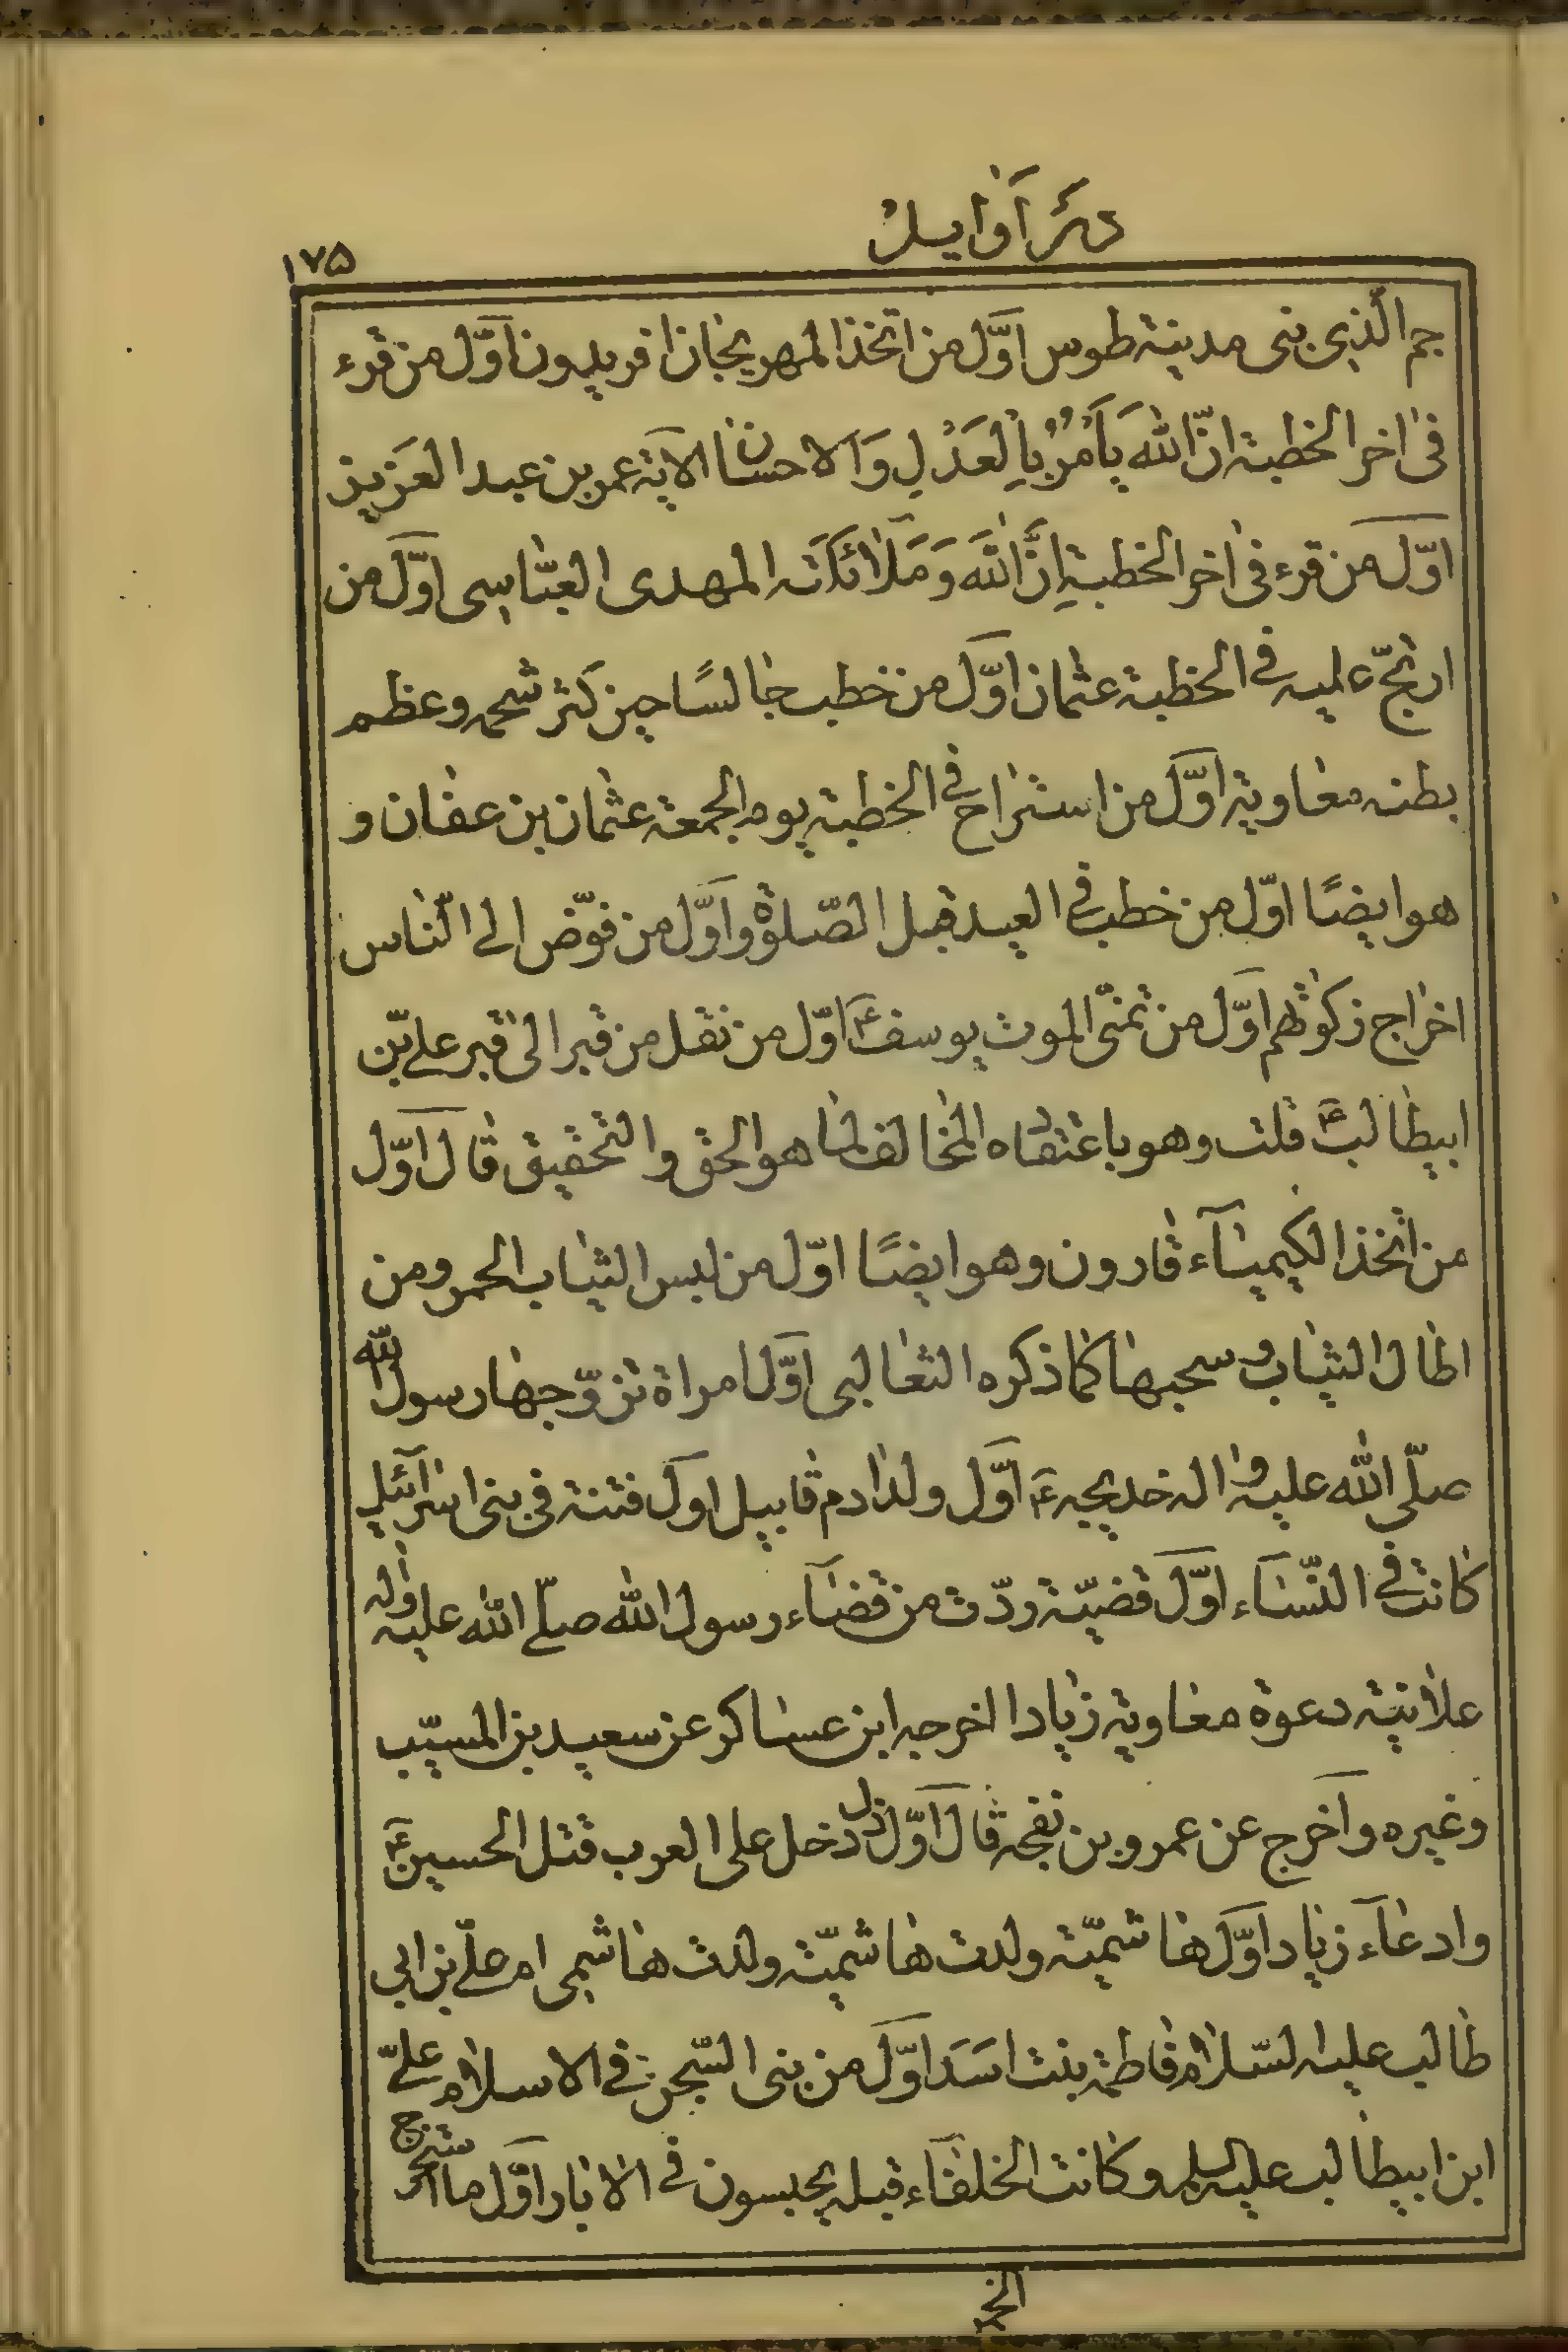 ذكر اوایل
١٧٥
جم الّذی بنی مدینة طوس اوّل من اتّخذ المهریجان افریدون اوّل من قرء
فی اخر الخطبة انّ اللّه یَأمُرُ بِالعَدْلِ وَالاحسان الآیة عمر بن عبد العَزیز
اوّل من قرء فی اخر الخطبة اِنَّ اللّهَ وَمَلٰائكَتَه المهدی العبّاسی اوّل من
ارتجّ علیه فی الخطبة عثمان اوّل من خطب جالسًا حین كثر شحمه وعظم
بطنه معاویة اوّل من استراح فی الخطبة یوم الجمعة عثمان بن عفان و
هو ایضًا اوّل من خطب فی العید قبل الصّلوة واوّل من فوّض الی النّاس
اخراج زكوتهم اوّل من تمنّی الموت یوسف ع اوّل من نقل من قبر الی قبر علی بن
ابیطالب ع قلت وهو باعتقاده المخالف لما هو الحق والتحقیق قال اوّل
من اتخذ الكیمیاء قارون وهو ایضًا اوّل من لبس الثیاب الحمر ومن
اطال الثیاب وسحبها كما ذكره الثعالبی اوّل امراة تزوّجها رسول اللّه
صلّی اللّه علیه واله خدیجه ع اوّل ولد ادم قابیل اول فتنة فی بنی اسرآئیل
كانت فی النّساء اوّل قضیّة ردّت من قضاء رسول اللّه صلّی اللّه علیه واله
علانیة دعوة معاویة زیادا اخرجه ابن عساكر عن سعید بن المسیّب
وغیره واخرج عن عمرو بن نفجه قال اوّل ذل دخل علی العرب قتل الحسین ع
وادعاء زیاد اوّل هاشمیّة ولدت هاشمیّة ولدت هاشمی ام علیّ بن ابی
طالب علیه السّلام فاطمة بنت اسَد اوّل من بنی السّجن فی الاسلام علیّ
ابن ابیطالب علیه السلم وكانت الخلفاء قبله یحبسون فی الابار اوّل ما استخرج
الخمر